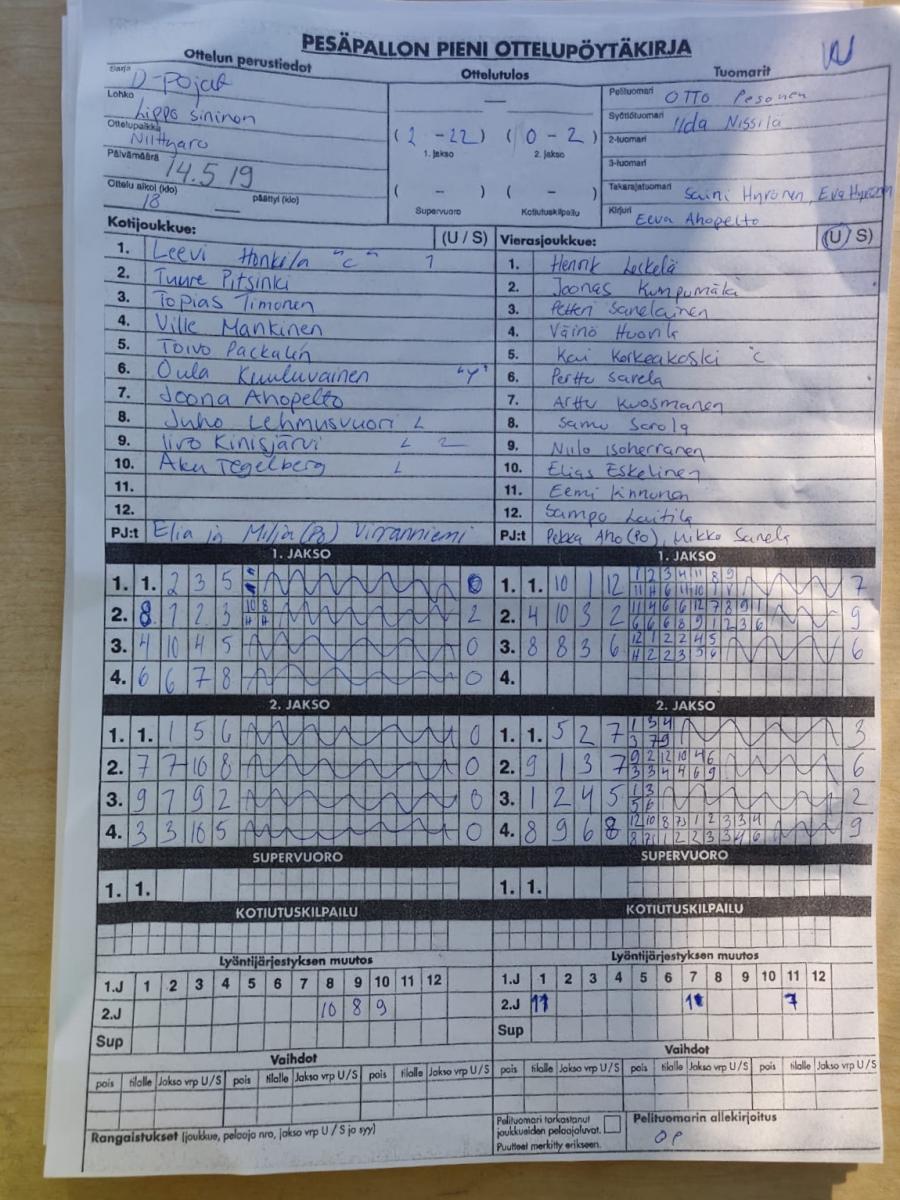 PESÄPALLON PIENI OTTELUPÖYTÄKIRJA
Ottelun perustiedot
Ottelutulos
Tuomarit
Sarja D-Pojat
Lohko Lippo sininen
Ottelupaikka Niittyaro
Päivämäärä 14.5 19
Ottelu alkoi (klo) 18 päättyi (klo)
( 2 - 22 ) ( 0 - 2 )
1. jakso 2. jakso
( - ) ( - )
Supervuoro Kotiutuskilpailu
Pelituomari OTTO Pesonen
Syöttötuomari Iida Nissilä
2-tuomari
3-tuomari
Takarajatuomari Saini Hyrönen,
Kirjuri Eeva Ahopelto
Kotijoukkue: (U / S)
1. Leevi Honkela "C" 1
2. Tuure Pitsinki
3. Topias Timonen
4. Ville Mankinen
5. Toivo Packalén
6. Oula Kuuluvainen
7. Joona Ahopelto
8. Juho Lehmusvuori L
9. Iiro Kinisjärvi L 2
10. Aku Tegelberg L
11.
12.
PJ:t Elia ja Milja (Po) Virranniemi
Vierasjoukkue: (U / S)
1. Henrik Leskelä
2. Joonas Kumpumäki
3. Petteri Sanelainen
4. Väinö
5. Kai Korkeakoski "C
6. Perttu Sarela
7. Arttu Kuosmanen
8. Samu Sarola
9. Niilo Isoherranen
10. Elias Eskelinen
11. Eemi Kinnunen
12. Sampo Laitila
PJ:t Pekka Aho (Po), Mikko Sarela
1. JAKSO
1. 1. 2 3 5 0
2. 8 1 2 3 10 8 2
3. 4 10 4 5 0
4. 6 6 7 8 0
2. JAKSO
1. 1. 1 5 6 0
2. 7 7 10 8 0
3. 9 7 9 2 0
4. 3 3 10 5 0
SUPERVUORO
1. 1.
KOTIUTUSKILPAILU
Lyöntijärjestyksen muutos
1.J 1 2 3 4 5 6 7 8 9 10 11 12
2.J 10 8 9
Sup
Vaihdot
pois tilalle Jakso vrp U/S pois tilalle Jakso vrp U/S pois tilalle Jakso vrp U/S
Rangaistukset (joukkue, pelaaja nro, jakso vrp U/S ja syy)
1. JAKSO
1. 1. 10 1 12 1 2 3 4 11 8 9 7
2. 4 10 3 2 11 4 6 6 12 7 8 9 1 9
6 6 6 8 9 1 2 3 6
3. 8 8 3 6 12 1 2 2 4 5 6
4.
2. JAKSO
1. 1. 5 2 7 1 3 4 3
3 7 9
2. 9 1 3 7 9 2 12 10 4 6 6
3 3 4 4 6 9
3. 1 2 4 5 1 3 2
5 6
4. 8 9 6 8 9
SUPERVUORO
1. 1.
KOTIUTUSKILPAILU
Lyöntijärjestyksen muutos
1.J 1 2 3 4 5 6 7 8 9 10 11 12
2.J 11 7
Sup
Vaihdot
pois tilalle Jakso vrp U/S pois tilalle Jakso vrp U/S pois tilalle Jakso vrp U/S
Pelituomari tarkastanut joukkueiden pelaajaluvat.
Puutteet merkitty erikseen.
Pelituomarin allekirjoitus
OP